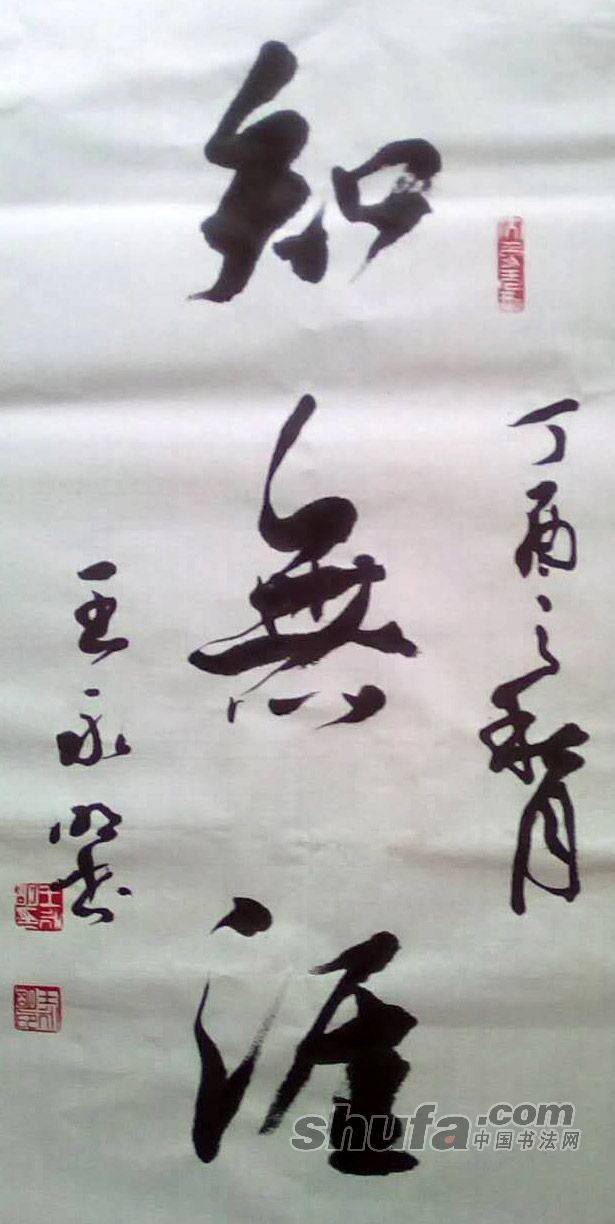 知無涯
丁酉之秋月
王永明书
shufa.com
中国书法网